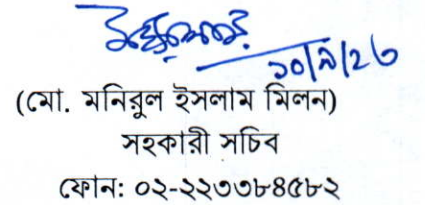 ১০/৯/২৩
(মো. মনিরুল ইসলাম মিলন)
সহকারী সচিব
ফোন: ০২-২২৩৩৮৪৫৮২